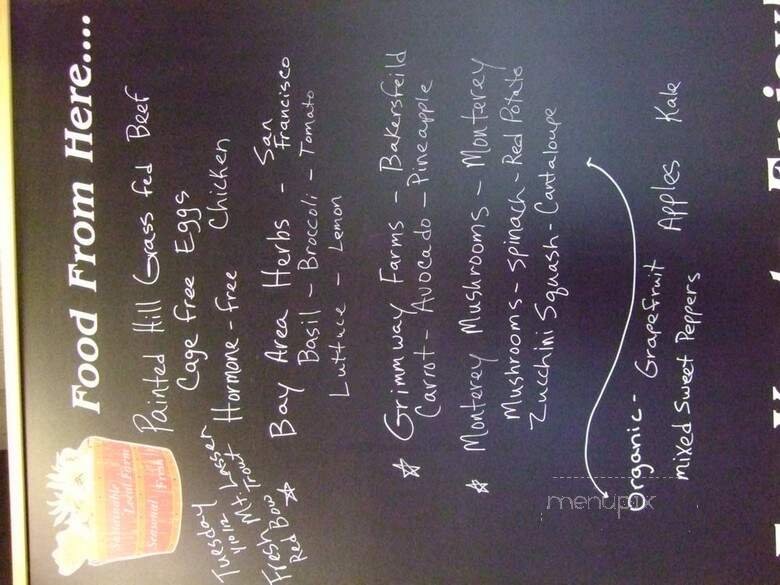 Food From Here....
Painted Hill Grass fed Beef
Cage Free Eggs
Hormone-free Chicken
Tuesday
Mt. Lasser
Trout
Fresh
Red Bow
☆ Bay Area Herbs - San Francisco
Basil - Broccoli - Tomato
Luttuce - Lemon
☆ Grimmway Farms - Bakersfeild
Carrot - Avocado - Pineapple
☆ Monterey Mushrooms - Monterey
Mushrooms - Spinach - Red Potato
Zucchini Squash - Cantaloupe
Organic - Grapefruit Apples Kale
mixed Sweet Peppers
Sustainable
Local Farm
Seasonal Fresh
menupix